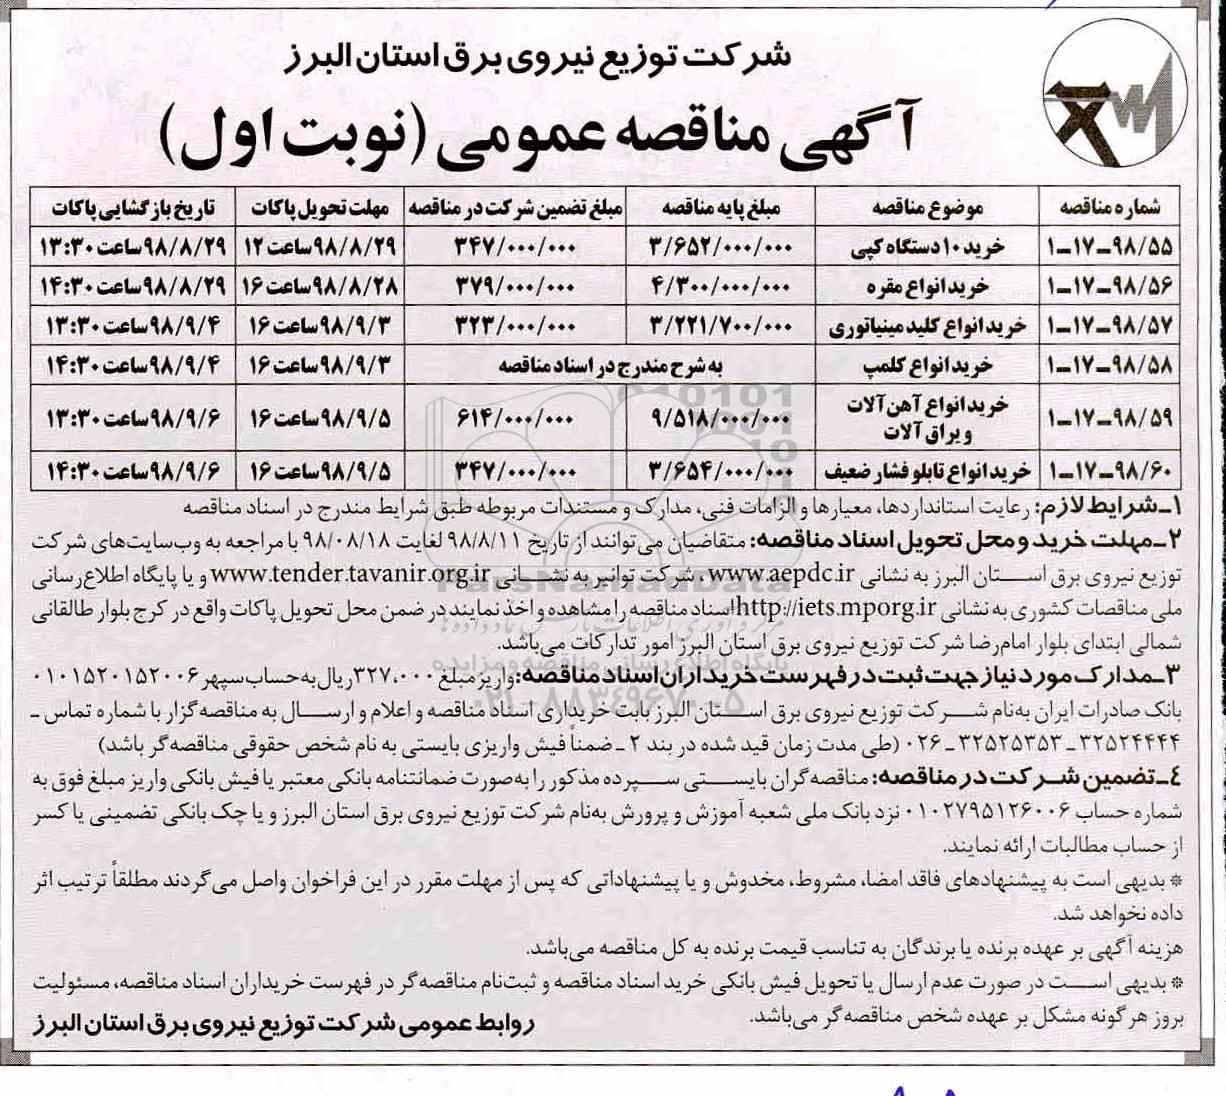 شرکت توزیع نیروی برق استان البرز
آگهی مناقصه عمومی (نوبت اول)
شماره مناقصه موضوع مناقصه مبلغ پایه مناقصه مبلغ تضمین شرکت در مناقصه مهلت تحویل پاکات تاریخ بازگشایی پاکات
۹۸/۵۵-۱۷-۱ خرید ۱۰ دستگاه کپی ۳/۶۵۲/۰۰۰/۰۰۰ ۳۴۷/۰۰۰/۰۰۰ ۹۸/۸/۲۹ ساعت ۱۲ ۹۸/۸/۲۹ ساعت ۱۳:۳۰
۹۸/۵۶-۱۷-۱ خرید انواع مقره ۴/۳۰۰/۰۰۰/۰۰۰ ۳۷۹/۰۰۰/۰۰۰ ۹۸/۸/۲۸ ساعت ۱۶ ۹۸/۸/۲۹ ساعت ۱۴:۳۰
۹۸/۵۷-۱۷-۱ خرید انواع کلید مینیاتوری ۳/۲۲۱/۷۰۰/۰۰۰ ۳۲۳/۰۰۰/۰۰۰ ۹۸/۹/۳ ساعت ۱۶ ۹۸/۹/۴ ساعت ۱۳:۳۰
۹۸/۵۸-۱۷-۱ خرید انواع کلمپ به شرح مندرج در اسناد مناقصه ۹۸/۹/۳ ساعت ۱۶ ۹۸/۹/۴ ساعت ۱۴:۳۰
۹۸/۵۹-۱۷-۱ خرید انواع آهن‌آلات و یراق آلات ۹/۵۱۸/۰۰۰/۰۰۰ ۶۱۴/۰۰۰/۰۰۰ ۹۸/۹/۵ ساعت ۱۶ ۹۸/۹/۶ ساعت ۱۳:۳۰
۹۸/۶۰-۱۷-۱ خرید انواع تابلو فشار ضعیف ۳/۶۵۴/۰۰۰/۰۰۰ ۳۴۷/۰۰۰/۰۰۰ ۹۸/۹/۵ ساعت ۱۶ ۹۸/۹/۶ ساعت ۱۴:۳۰
۱ـ شرایط لازم: رعایت استانداردها، معیارها و الزامات فنی، مدارک و مستندات مربوطه طبق شرایط مندرج در اسناد مناقصه
۲ـ مهلت خرید و محل تحویل اسناد مناقصه: متقاضیان می‌توانند از تاریخ ۹۸/۸/۱۱ لغایت ۹۸/۰۸/۱۸ با مراجعه به وب‌سایت‌های شرکت
توزیع نیروی برق استان البرز به نشانی www.aepdc.ir، شرکت توانیر به نشانی www.tender.tavanir.org.ir و یا پایگاه اطلاع‌رسانی
ملی مناقصات کشوری به نشانی http://iets.mporg.ir اسناد مناقصه را مشاهده و اخذ نمایند در ضمن محل تحویل پاکات واقع در کرج بلوار طالقانی
شمالی ابتدای بلوار امام‌رضا شرکت توزیع نیروی برق استان البرز امور تدارکات می‌باشد.
۳ـ مدارک مورد نیاز جهت ثبت در فهرست خریداران اسناد مناقصه: واریز مبلغ ۳۲۷,۰۰۰ ریال به حساب سپهر ۰۱۰۱۵۲۰۱۵۲۰۰۶
بانک صادرات ایران به‌نام شرکت توزیع نیروی برق استان البرز بابت خریداری اسناد مناقصه و اعلام و ارسال به مناقصه‌گزار با شماره تماس ـ
۳۲۵۲۴۴۴۴ ـ ۳۲۵۲۵۳۵۳ ـ ۰۲۶ (طی مدت زمان قید شده در بند ۲ ـ ضمناً فیش واریزی بایستی به نام شخص حقوقی مناقصه‌گر باشد)
۴ـ تضمین شرکت در مناقصه: مناقصه‌گران بایستی سپرده مذکور را به‌صورت ضمانتنامه بانکی معتبر یا فیش بانکی واریز مبلغ فوق به
شماره حساب ۰۱۰۲۷۹۵۱۲۶۰۰۶ نزد بانک ملی شعبه آموزش و پرورش به‌نام شرکت توزیع نیروی برق استان البرز و یا چک بانکی تضمینی یا کسر
از حساب مطالبات ارائه نمایند.
* بدیهی است به پیشنهادهای فاقد امضا، مشروط، مخدوش و یا پیشنهاداتی که پس از مهلت مقرر در این فراخوان واصل می‌گردند مطلقاً ترتیب اثر
داده نخواهد شد.
هزینه آگهی بر عهده برنده یا برندگان به تناسب قیمت برنده به کل مناقصه می‌باشد.
* بدیهی است در صورت عدم ارسال یا تحویل فیش بانکی خرید اسناد مناقصه و ثبت‌نام مناقصه‌گر در فهرست خریداران اسناد مناقصه، مسئولیت
بروز هرگونه مشکل بر عهده شخص مناقصه‌گر می‌باشد.
روابط عمومی شرکت توزیع نیروی برق استان البرز
ParsNamadData
پایگاه اطلاع رسانی مناقصه و مزایده
۰۲۱-۸۸۳۴۹۶۷۰-۵